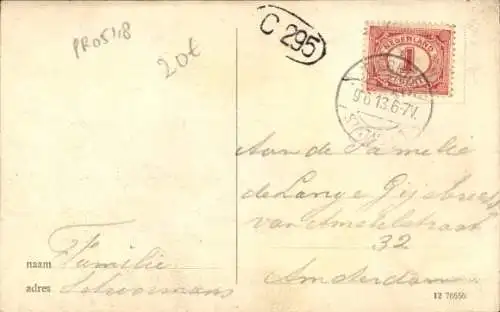 PR05118
20€
C 295
NEDERLAND
1
9.6.13.6-7V.
Aan de Familie
de Lange Gijsbrecht
van Amstelstraat
32
Amsterdam
naam Familie
adres Schoormans
12 76550